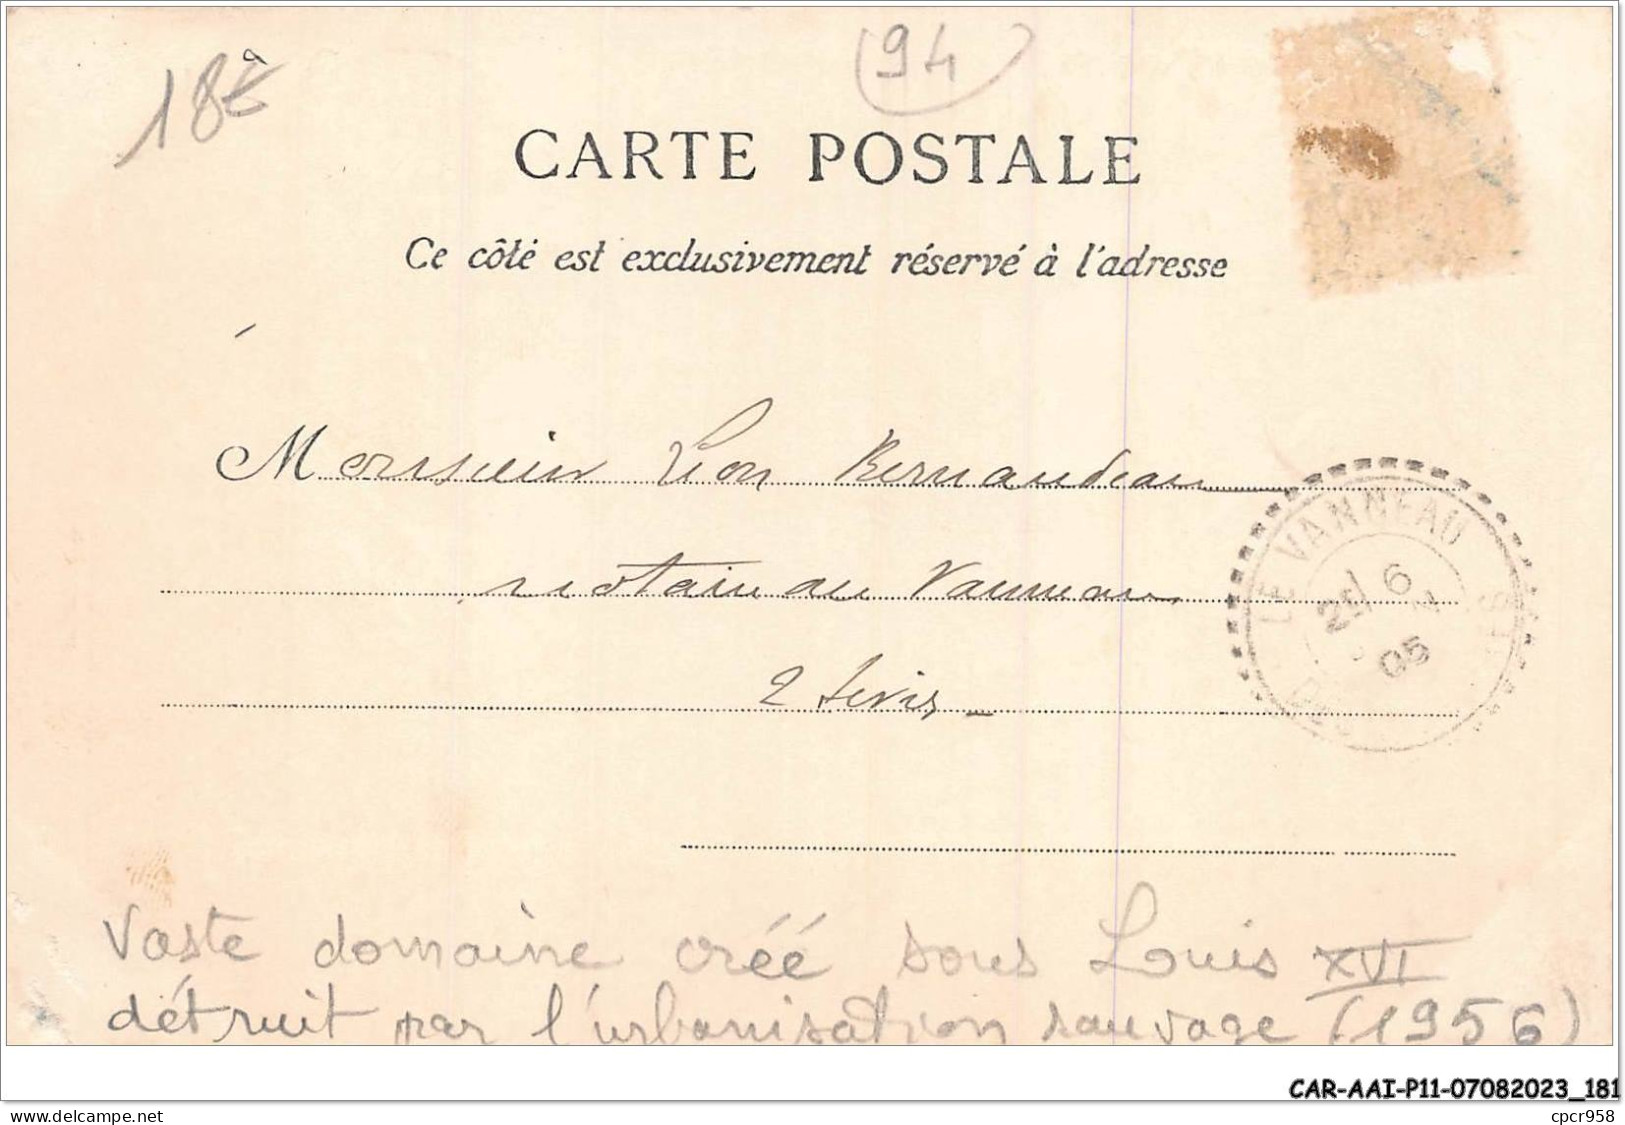 18€
94
CARTE POSTALE
Ce côté est exclusivement réservé à l'adresse
Monsieur Léon Bernaudeau
notaire au Vanneau
2 Sevres
LE VANNEAU
6
05
Vaste domaine créé sous Louis XVI
détruit par l'urbanisation sauvage (1956)
CAR-AAI-P11-07082023_181
www.delcampe.net
cpcr958